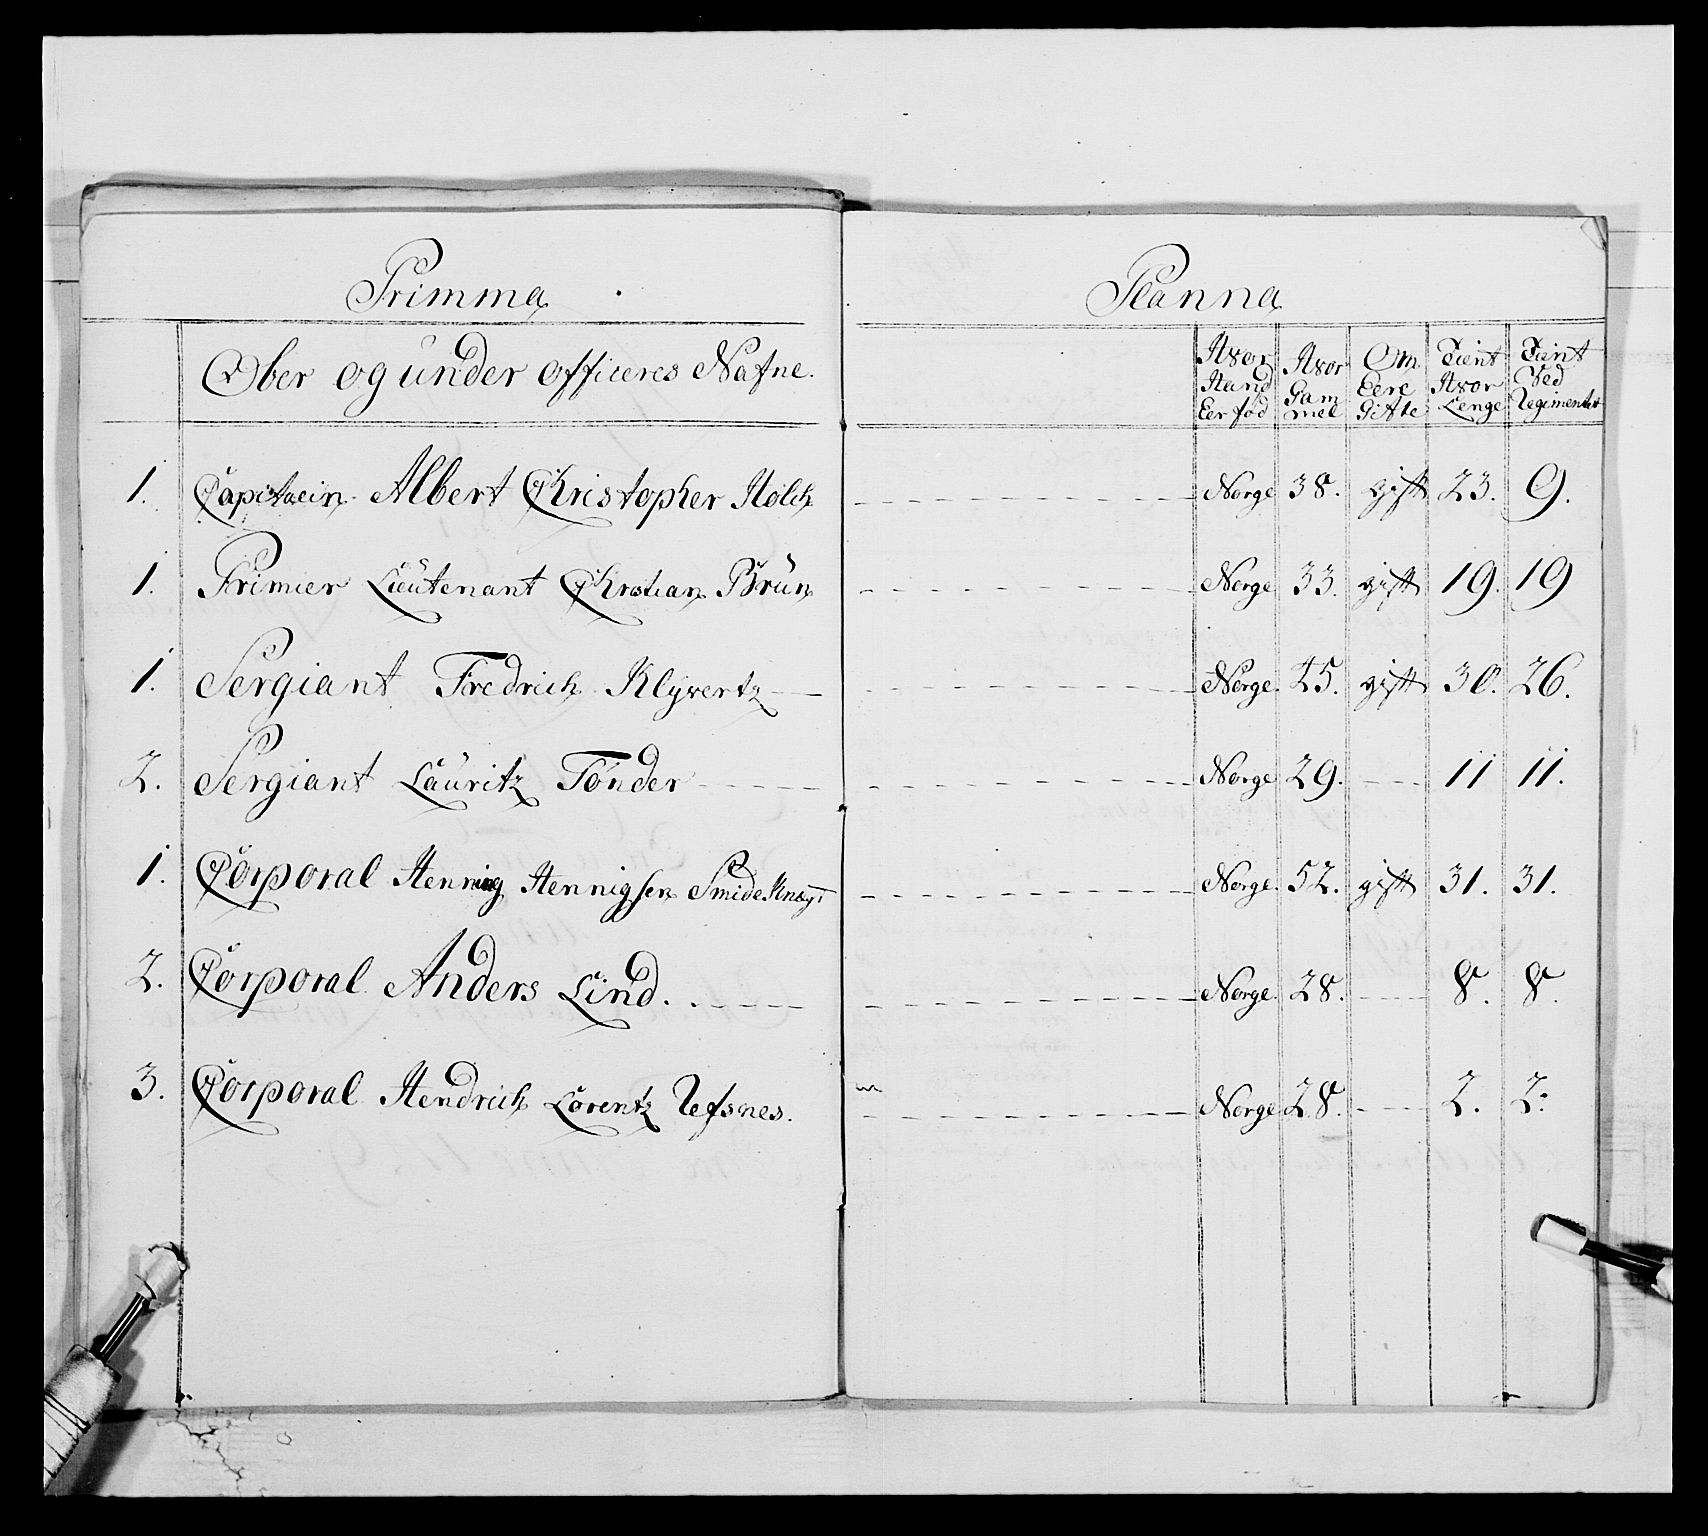 Primma Planna
Ober og under officeres Nafne. Hvor Land Eer fød Hvor Gam mel Om Eere Gifte Tient Hvor Lenge Tient Ved Regimentet
1. Capitaein Albert Christopher Holck Norge 38. gift 23. 9.
1. Primier Lieutenant Christian Brün Norge 33. gift 19. 19
1. Sergiant Fredrich Klÿvertz Norge. 45. gift 30. 26.
2. Sergiant Lauritz Tønder Norge 29. 11 11.
1. Corporal Henning Hennigsen Smideknegt Norge. 52. gift 31. 31.
2. Corporal Anders Lind. Norge. 28. 8. 8.
3. Corporal Hendrich Lorentz Refsnes. Norge 28. 2. 2.